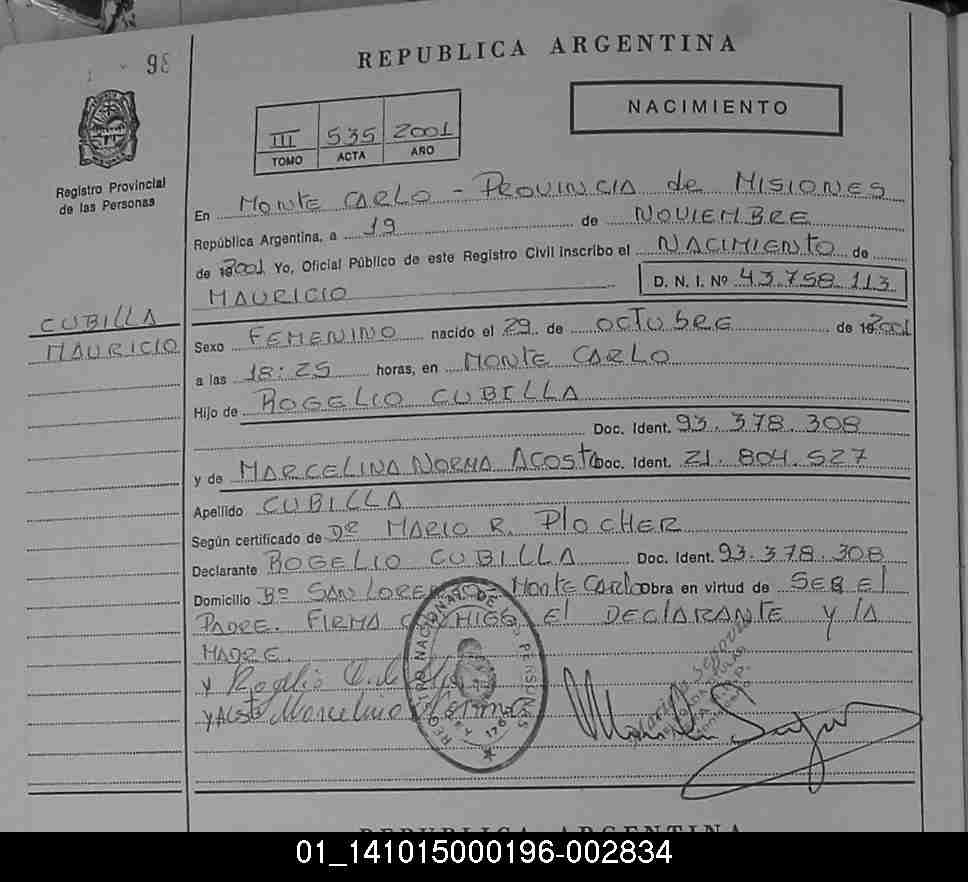 98
REPUBLICA ARGENTINA
NACIMIENTO
III 535 2001
TOMO ACTA AÑO
Registro Provincial
de las Personas
En MONTE CARLO - PROVINCIA de MISIONES
República Argentina, a 19 de NOVIEMBRE
de 2001 Yo, Oficial Público de este Registro Civil inscribo el NACIMIENTO de
MAURICIO D. N. I. Nº 43.758.113
CUBILLA
MAURICIO
Sexo FEMENINO nacido el 29 de OCTUBRE de 2001
a las 18:25 horas, en MONTE CARLO
Hijo de ROGELIO CUBILLA
Doc. Ident. 93.378.308
y de MARCELINA NORMA ACOSTA Doc. Ident. 21.804.527
Apellido CUBILLA
Según certificado de Dr MARIO R. PLOCHER
Declarante ROGELIO CUBILLA Doc. Ident. 93.378.308
Domicilio Bº SAN LORENZO MONTE CARLO Obra en virtud de SER EL
PADRE. FIRMA CONMIGO EL DECLARANTE Y LA
MADRE.
REGISTRO NACIONAL DE LAS PERSONAS
REPUBLICA ARGENTINA
01_141015000196-002834